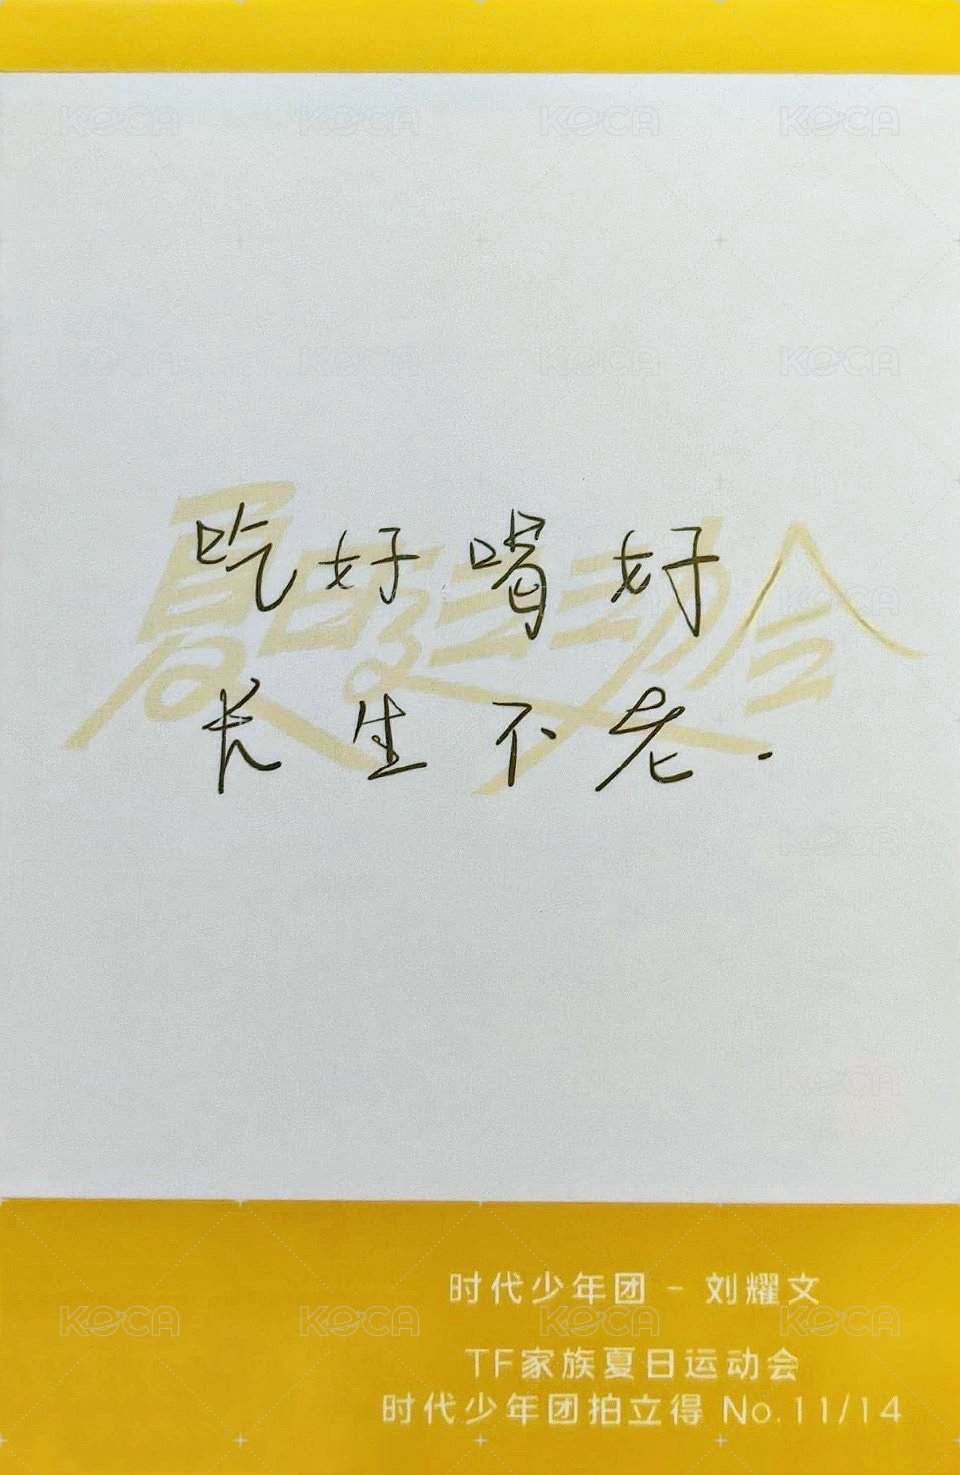 夏日运动会
吃好喝好
长生不老.
时代少年团 - 刘耀文
TF家族夏日运动会
时代少年团拍立得 No.11/14
KOCA